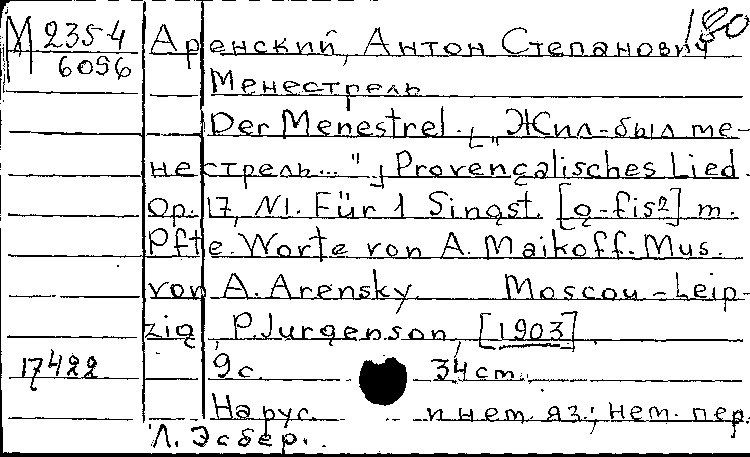 180
М 2354
6096
Аренский, Антон Степанович
Менестрель
Der Menestrel. [„Жил-был ме-
нестрель..."] Provençalisches Lied.
Op. 17, N1. Für 1 Singst. [g-fis²] m.
Pfte. Worte von A. Maikoff. Mus.
von A. Arensky Moscou-Leip-
zig, P. Jurgenson, [1903].
17422 9 с. 34 cm.
На рус. и нем. яз.; нем. пер.
Л. Эсбер.